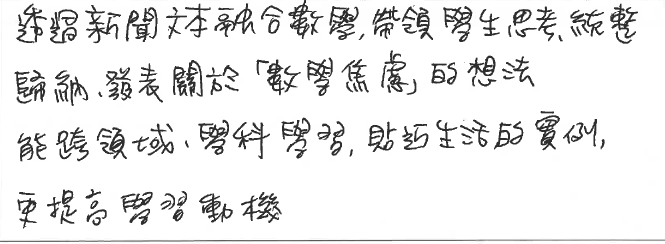 透過新聞文本融合數學,帶領學生思考、統整
歸納、發表關於「數學焦慮」的想法
能跨領域、學科學習,貼近生活的實例,
更提高學習動機